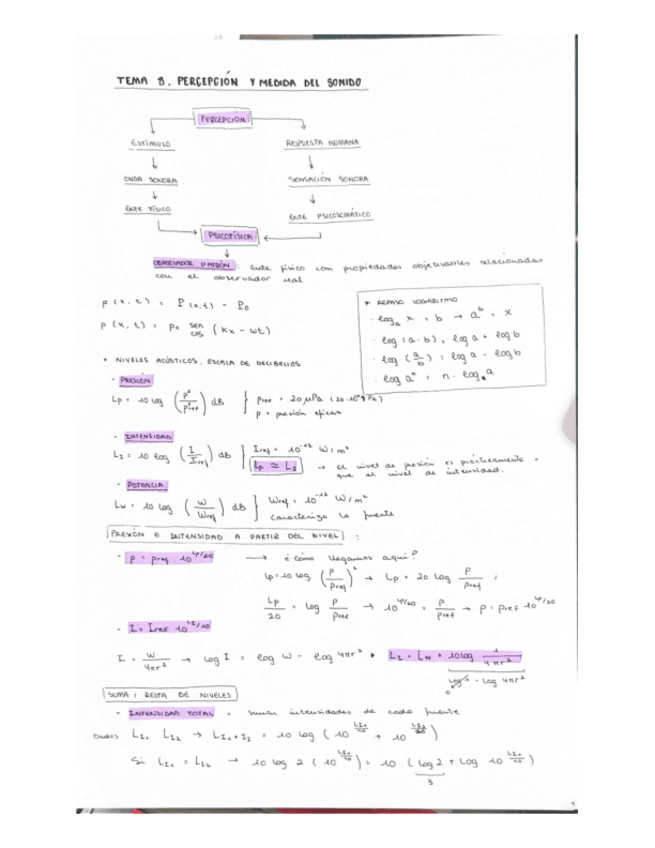 TEMA 8. PERCEPCIÓN Y MEDIDA DEL SONIDO
PERCEPCIÓN
ESTÍMULO
RESPUESTA HUMANA
ONDA SONORA
SENSACIÓN SONORA
ENTE FÍSICO
ENTE PSICOSOMÁTICO
PSICOFÍSICA
OBSERVADOR PATRÓN: Ente físico con propiedades objetivables relacionadas
con el observador real
p(x,t) = P(x,t) - P₀
p(x,t) = p₀ sen cos (kx - wt)
* REPASO LOGARITMO
· logₐ x = b → aᵇ = x
· log (a·b) = log a + log b
· log (a/b) = log a - log b
· log aⁿ = n · log a
• NIVELES ACÚSTICOS. ESCALA DE DECIBELIOS
- PRESIÓN
Lp = 10 log (p²/p²ref) dB } pref = 20 μPa
p = presión eficaz
- INTENSIDAD
L_I = 10 log (I/Iref) dB } Iref = 10⁻¹² W/m²
Lp ≈ L_I → el nivel de presión es prácticamente =
que el nivel de intensidad.
- POTENCIA
Lw = 10 log (W/Wref) dB } Wref = 10⁻¹² W/m²
caracteriza la fuente
PRESIÓN E INTENSIDAD A PARTIR DEL NIVEL :
- p = pref 10^Lp/20 → ¿cómo llegamos aquí?
Lp = 10 log (p/pref)² → Lp = 20 log p/pref ;
Lp/20 = log p/pref → 10^Lp/20 = p/pref → p = pref 10^Lp/20
- I = Iref 10^L_I/10
I = W/4πr² → log I = log W - log 4πr² * L_I = Lw + 10 log 1/4πr²
log 1 - log 4πr²
0
SUMA / RESTA DE NIVELES
- INTENSIDAD TOTAL = suman intensidades de cada fuente
Dados L_I₁ L_I₂ → L_I₁+I₂ = 10 log (10^L_I₁/10 + 10^L_I₂/10)
Si L_I₁ = L_I₂ → 10 log 2 (10^L_I₁/10) = 10 (log 2 + log 10^L_I₁/10)
3